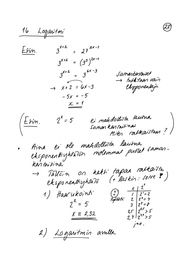 16 Logaritmi
27
Esim.
3^(x+2) = 27^(2x-1)
3^(x+2) = (3^3)^(2x-1)
3^(x+2) = 3^(6x-3)
Samankantaiset
→ tutkitaan vain
eksponentteja
→ x+2 = 6x-3
-5x = -5
x = 1
Esim. 2^x = 5
ei mahdollista laittaa
samankantaisina
Miten ratkaistaan?
• Aina ei ole mahdollista laittaa
eksponenttiyhtälön molemmat puolet saman-
kantaisina
→ Tällöin on kaksi tapaa ratkaista
eksponenttiyhtälö
1) Haarukointi
2^x = 5
x ≈ 2,32
x 2^x
1
2
3
2) Logaritmin avulla